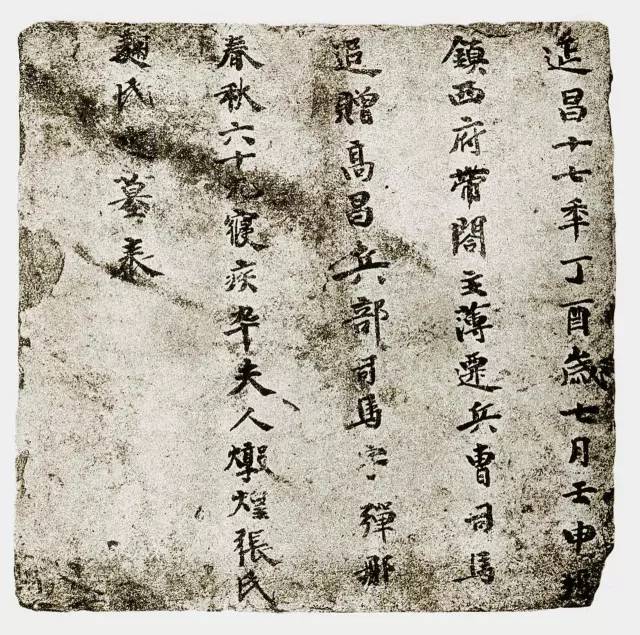 延昌十七年丁酉歲七月壬申朔
鎮西府帶閤主薄遷兵曹司馬
追贈高昌兵部司馬字彈那
春秋六十九寢疾卒夫人燉煌張氏
麴氏之墓表